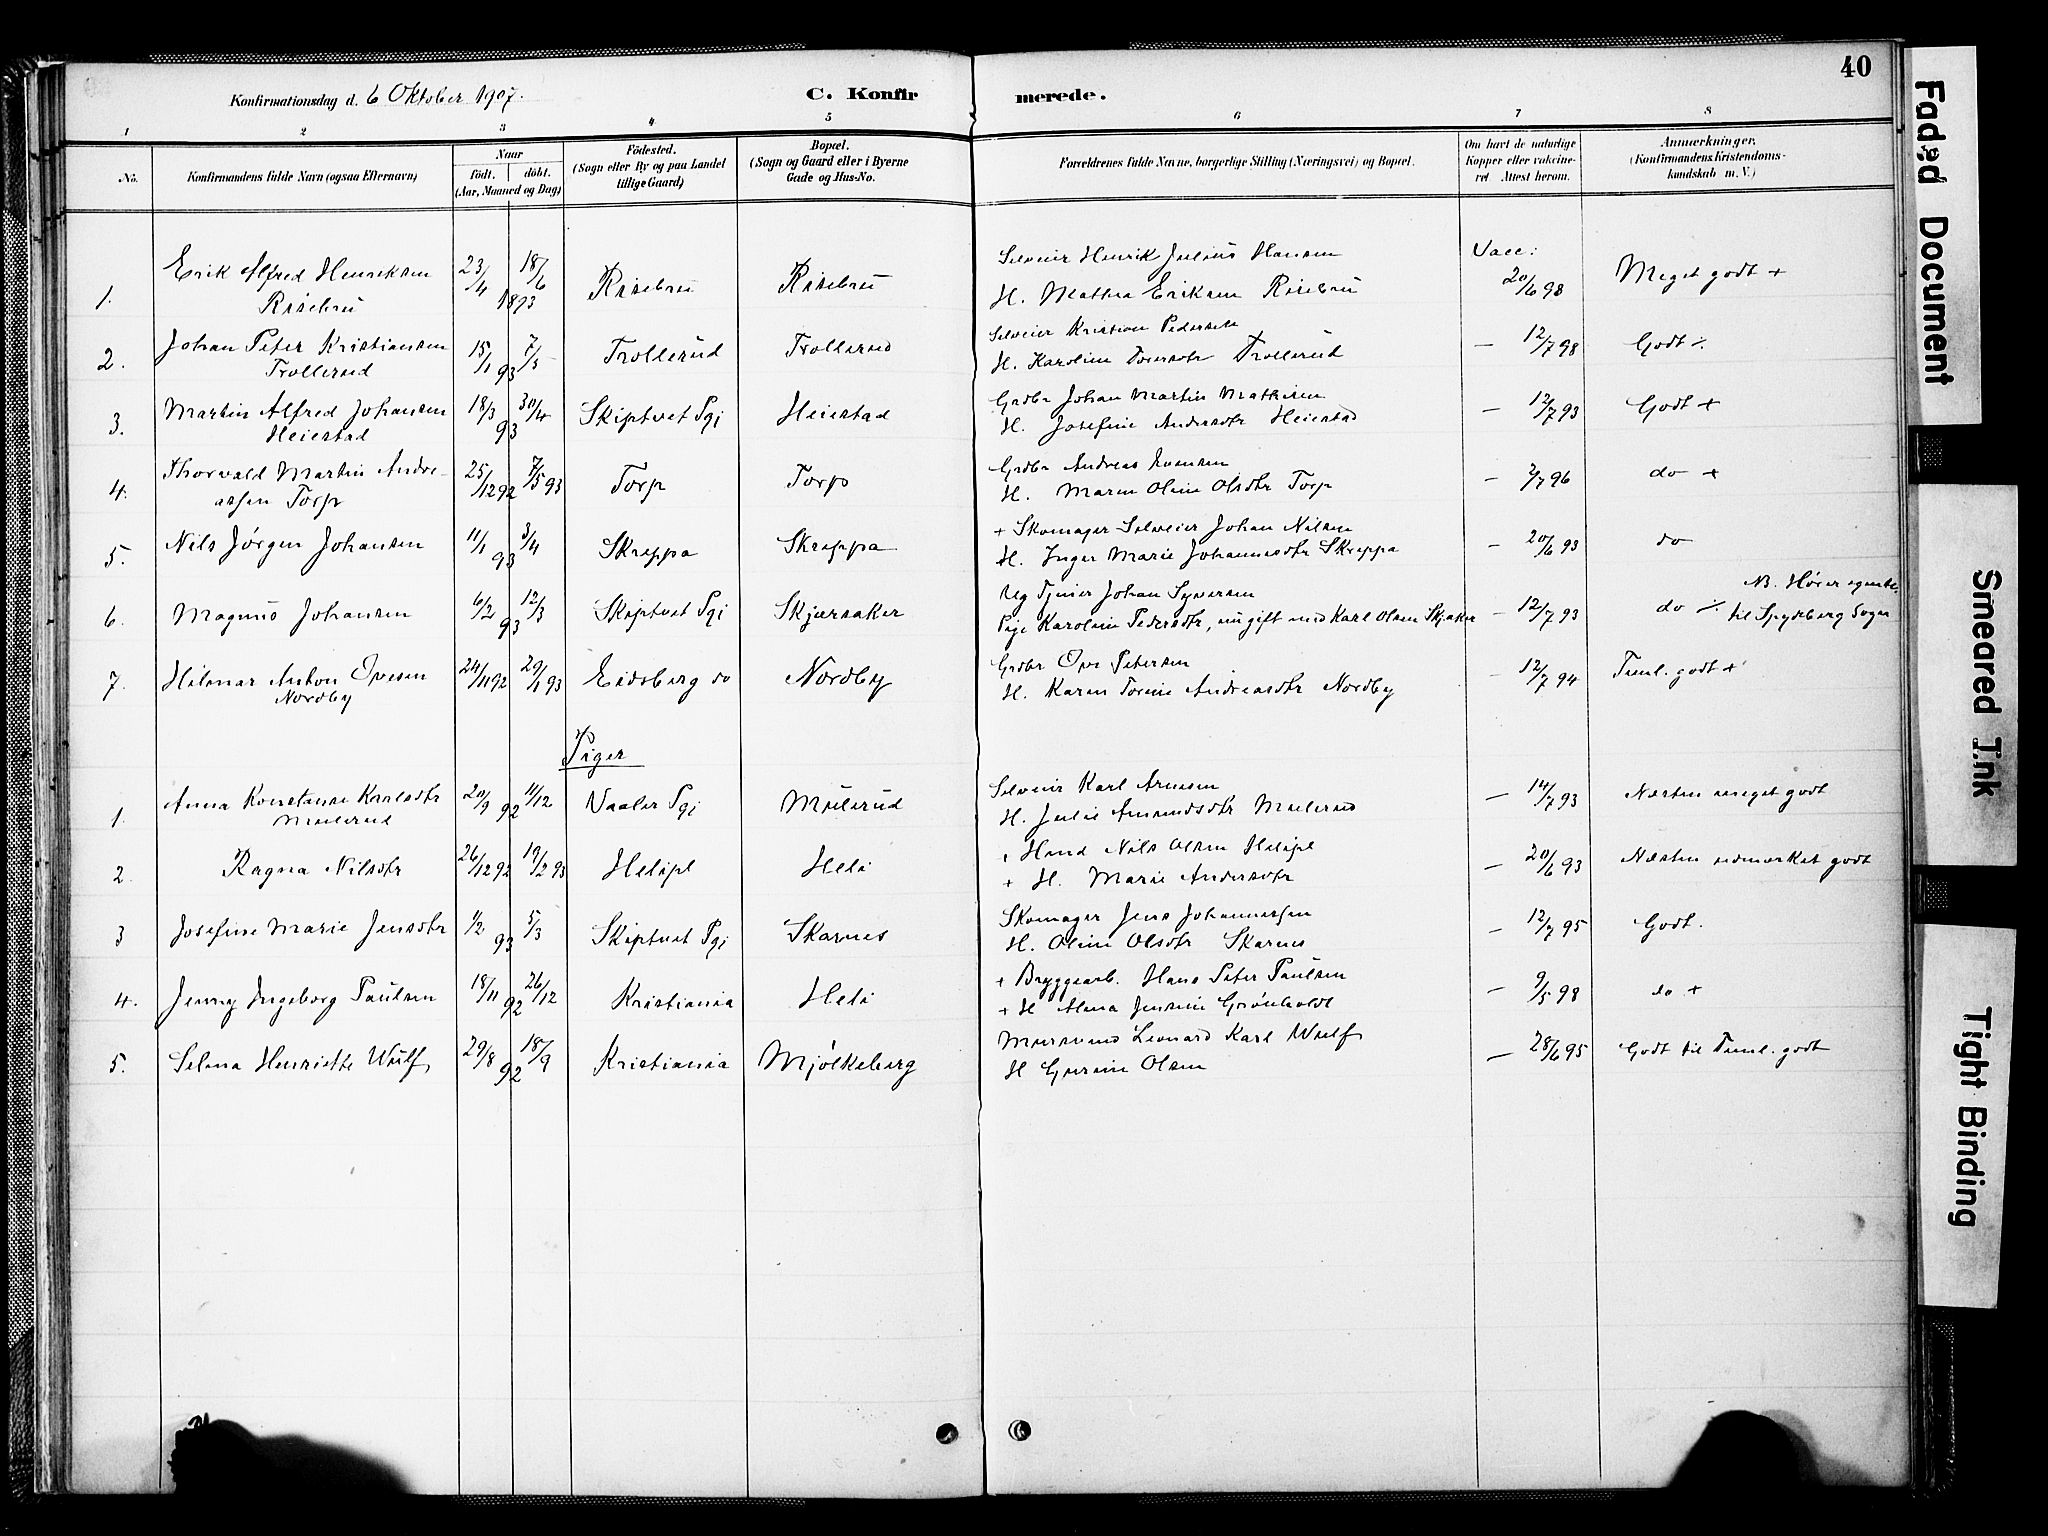 40
Konfirmationsdag d. 6 Oktober 1907.
C. Konfir merede.
1 2 3 4 5 6 7 8
No.
Konfirmandens fulde Navn (ogsaa Efternavn)
Naar
födt. döbt.
(Aar, Maaned og Dag)
Födested.
(Sogn eller By og paa Landet
tillige Gaard)
Bopæl.
(Sogn og Gaard eller i Byerne
Gade og Hus-No.
Forældrenes fulde Navne, borgerlige Stilling (Næringsvei) og Bopæl.
Om havt de naturlige
Kopper eller vakcine-
ret. Attest herom.
Anmærkninger.
(Konfirmandens Kristendoms-
kundskab m. V.)
1. Erik Alfred Henriksen 23/4 18/6 1893 Risebru Risebru Selveier Henrik Julius Hansen Vacc: 20/6 98 Meget godt +
Risebru H. Mathea Eriksen Risebru
2. Johan Peter Kristiansen 15/1 93 7/5 Trollerud Trollerud Selveier Kristian Pedersen — 12/7 98 Godt ÷
Trollerud H. Karoline Trollerud
3. Martin Alfred Johansen 18/3 93 30/4 Skiptvet Pgj Heiestad Grdbr Johan Martin Mathisen — 12/7 93 Godt +
Heiestad H. Josefine Andersdtr Heiestad
4. Thorvald Martin Andre- 25/12 92 7/5 93 Torp Torp Grdbr Andreas — 96 do +
assen Torp H. Maren Oline Olsdtr Torp
5. Nils Jørgen Johansen 11/1 93 3/4 Skreppa Skreppa + Skomager Selveier Johan Nilsen — 20/6 93 do
H. Inger Marie Johannesdtr Skreppa
6. Magnus Johansen 6/2 93 12/3 Skiptvet Pgj Skjærsaker Ug Tjener Johan Syversen — 12/7 93 do ÷ NB. Hører
Pige Karoline Pedersdtr, nu gift med Karl Olsen til Spydeberg Sogn
7. Hilmar Anton Ovesen 24/11 92 29/1 93 Eidsberg do Nordby Grdbr Ove Petersen — 12/7 94 Teml. godt +
Nordby H. Karen Andreasdtr Nordby
Piger
1. Anna Konstanse Karlsdtr 20/9 92 11/12 Vaaler Pgj Mulerud Selveier Karl Arnesen — 14/7 93 Næsten meget godt
Mulerud H. Julie Amundsdtr Mulerud
2 Ragna Nilsdtr 26/12 92 19/2 93 Helipl Heli + Hmd Nils Olsen Helipl — 20/6 93 Næsten udmerket godt
+ H. Marie Andersdtr
3 Josefine Marie Jensdtr 1/2 93 5/3 Skiptvet Pgj Skarnes Skomager Jens Johannessen — 12/7 95 Godt.
H. Oline Olsdtr Skarnes
4. Jenny Ingeborg Paulsen 18/11 92 26/12 Kristiania Heli + Bryggearb. Hans Peter Paulsen — 9/5 98 do +
+ H Alma Grönholdt
5. Selma Henriette Wulf 29/8 92 18/9 Kristiania Mjølkeberg Leonard Karl Wulf — 28/6 95 Godt til Teml. godt
H Olsen
Faded Document
Smeared Ink
Tight Binding